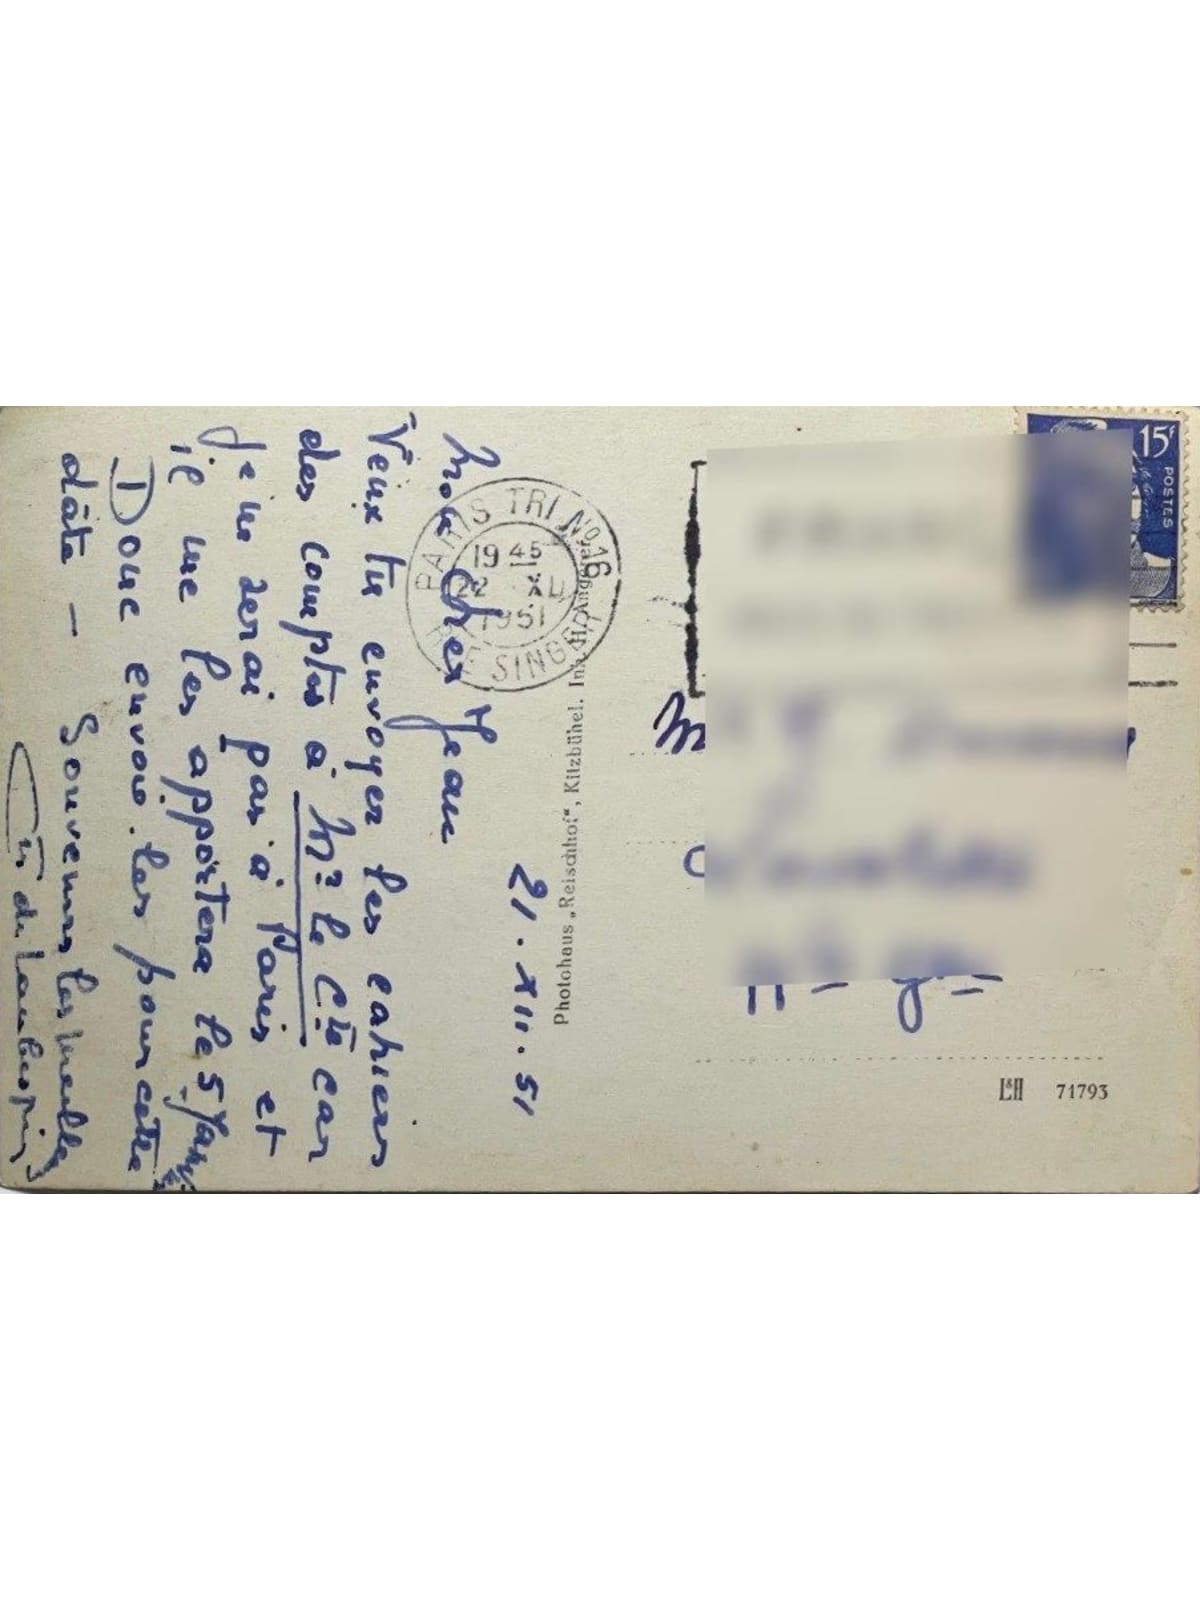 21.XII.51
Mon cher Jean
Veux tu envoyer les cahiers
des comptes à Mr le Cte car
je ne serai pas à Paris et
il me les apportera le 5 Janv
Donc envoie les pour cette
date - Souvenirs les meilleurs
Cte de
PARIS TRI No 16
19 45
22 XII
1951
RUE SINGER
Photohaus „Reischhof", Kitzbühel. Inh. H. Angerer
15F
POSTES
M
L&H 71793